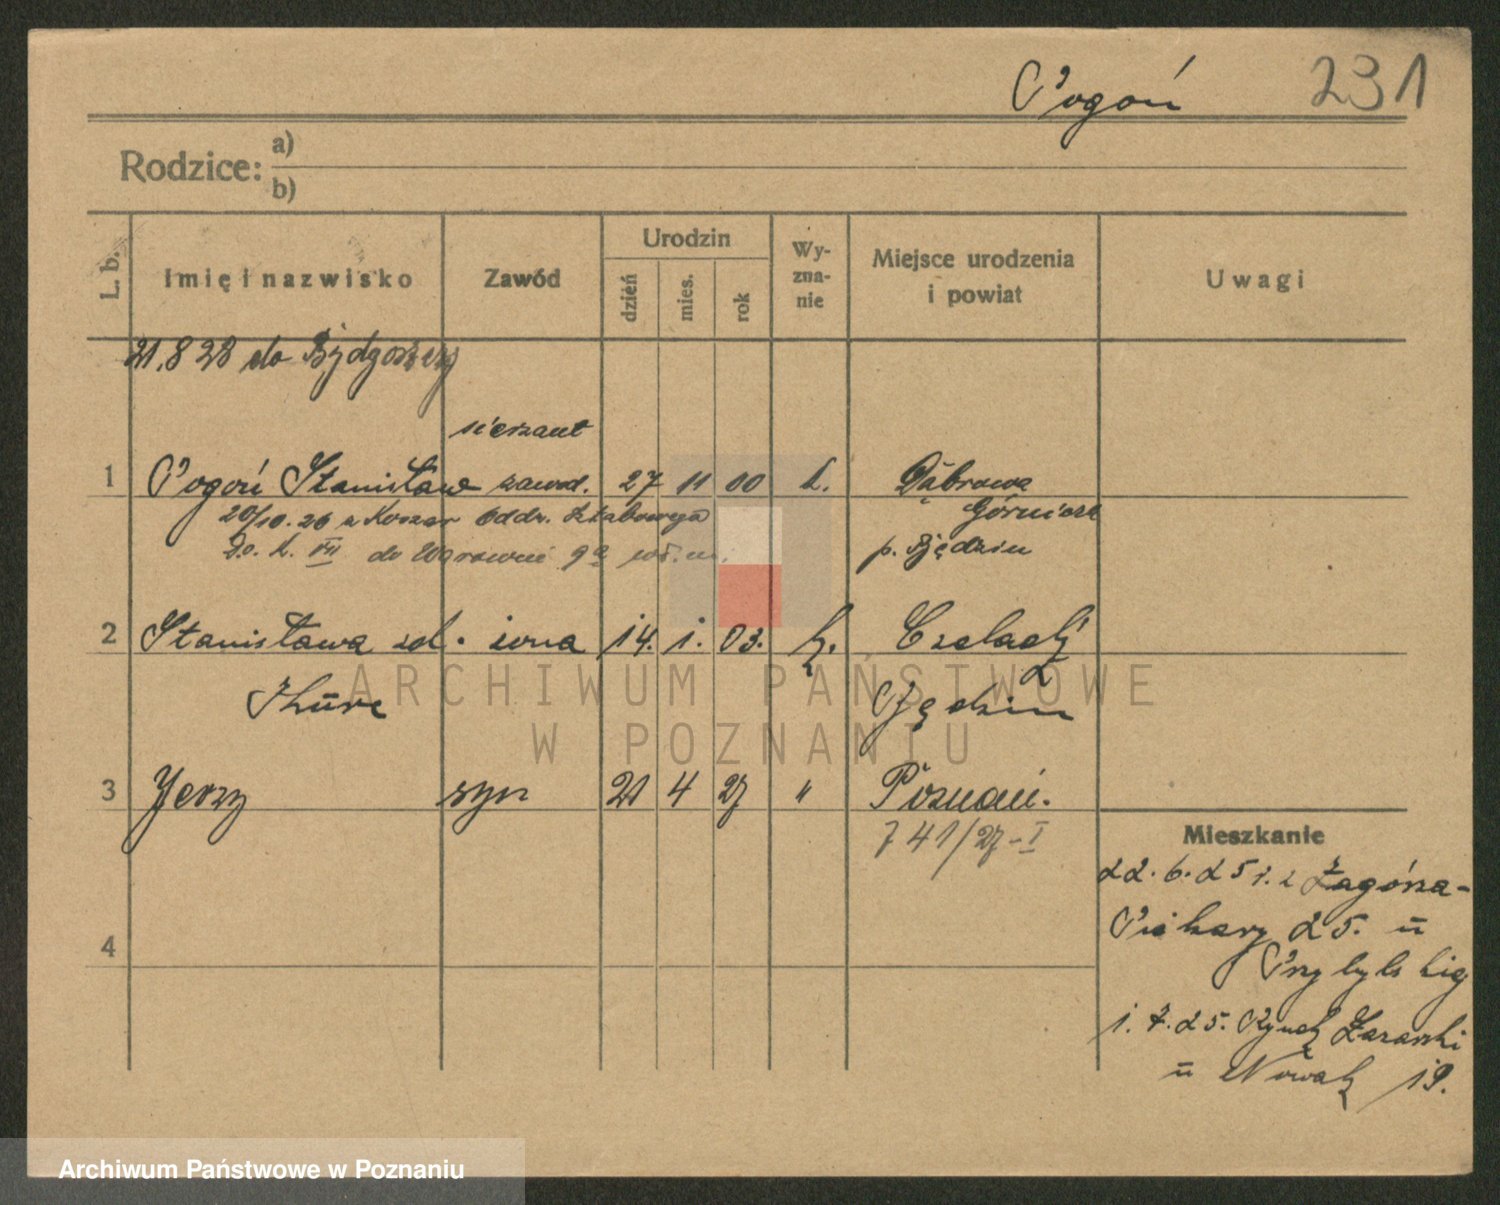 Pogoń 231
Rodzice: a)
b)
L. b. Imię i nazwisko Zawód Urodzin dzień mies. rok Wyznanie Miejsce urodzenia i powiat Uwagi
21.8 28 do Bydgoszczy
sierżant
1 Pogoń Stanisław zawod. 27 11 00 k. Dąbrowa
20/10. 26 z Koszar Oddz. Sztabowego Górnicza
D.O.K. VII do p. Będzin
2 Stanisława zd. żona 14. 1. 03. k. Czeladź
Będzin
3 Jerzy syn 21 4 27 " Poznań.
741/27-I
Mieszkanie
22. 6. 25 r. z Zagórza-
Piekary 25. u
Przybylskiej
1. 7. 25. Rynek Łazarski
u Nowak 19.
4
ARCHIWUM PAŃSTWOWE
W POZNANIU
Archiwum Państwowe w Poznaniu